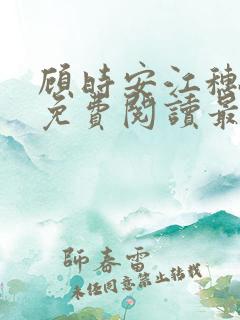 顾時安江穗
免費閱讀最
師春雷
未经同意禁止转载